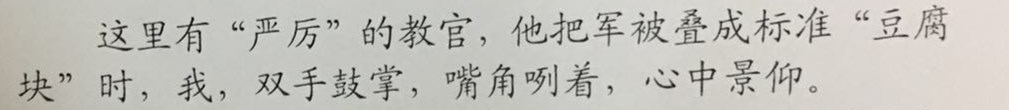 这里有“严厉”的教官，他把军被叠成标准“豆腐
块”时，我，双手鼓掌，嘴角咧着，心中景仰。